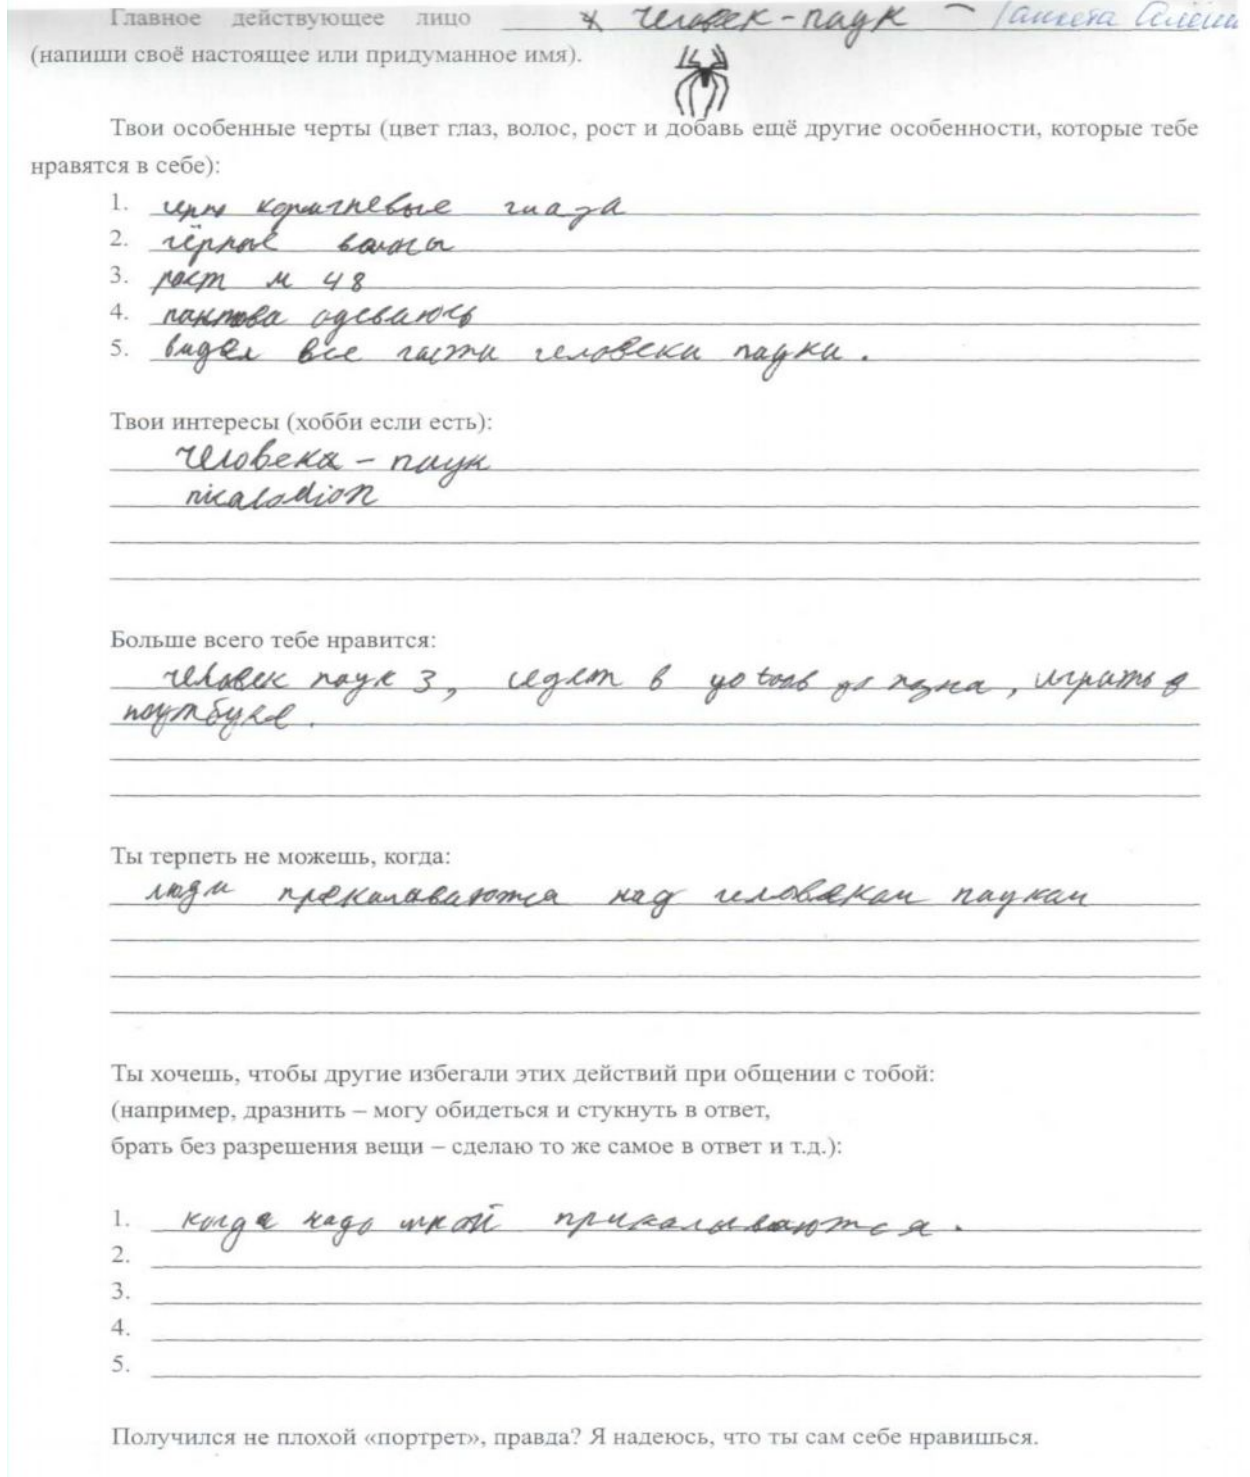 Главное действующее лицо человек-паук – Анкета
(напиши своё настоящее или придуманное имя).
Твои особенные черты (цвет глаз, волос, рост и добавь ещё другие особенности, которые тебе
нравятся в себе):
1. коричневые глаза
2. чёрные волосы
3. рост м 48
4. одеваюсь
5. видел все части человека паука.
Твои интересы (хобби если есть):
человека - паук
nicalodion
Больше всего тебе нравится:
человек паук 3, сидет в yotoob до поздна, играть в
ноутбуке.
Ты терпеть не можешь, когда:
люди прекалываются над человекам паукам
Ты хочешь, чтобы другие избегали этих действий при общении с тобой:
(например, дразнить – могу обидеться и стукнуть в ответ,
брать без разрешения вещи – сделаю то же самое в ответ и т.д.):
1. когда надо мной прикалываются.
2.
3.
4.
5.
Получился не плохой «портрет», правда? Я надеюсь, что ты сам себе нравишься.